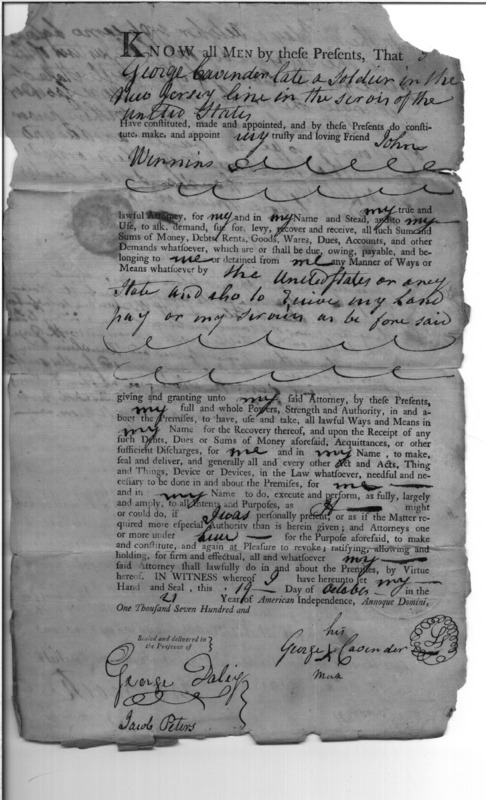 KNOW all MEN by these Presents, That I
George Cavinder late a Soldier in the
New Jersey line in the servis of the
United States
Have constituted, made and appointed, and by these Presents do consti-
tute, make, and appoint my trusty and loving Friend John
Winnins
lawful Attorney, for my and in my Name and Stead, and to my true and my
Use, to ask, demand, sue for, levy, recover and receive, all such Sum and
Sums of Money, Debts, Rents, Goods, Wares, Dues, Accounts, and other
Demands whatsoever, which are or shall be due, owing, payable, and be-
longing to me or detained from me any Manner of Ways or
Means whatsoever by the United States or aney
State and also to my Land
pay or my Servises as be fore said
giving and granting unto my said Attorney, by these Presents,
my full and whole Powers, Strength and Authority, in and a-
bout the Premises, to have, use and take, all lawful Ways and Means in
my Name for the Recovery thereof, and upon the Receipt of any
such Debts, Dues or Sums of Money aforesaid, Acquittances, or other
sufficient Discharges, for me and in my Name, to make,
seal and deliver, and generally all and every other Act and Acts, Thing
and Things, Device or Devices, in the Law whatsoever, needful and ne-
cessary to be done in and about the Premises, for me
and in my Name to do, execute and perform, as fully, largely
and amply, to all Intents and Purposes, as might
or could do, if I was personally present, or as if the Matter re-
quired more especial Authority than is herein given; and Attorneys one
or more under for the Purpose aforesaid, to make
and constitute, and again at Pleasure to revoke; ratifying, allowing and
holding, for firm and effectual, all and whatsoever my
said Attorney shall lawfully do in and about the Premises, by Virtue
hereof. IN WITNESS whereof I have hereunto set my
Hand and Seal, this 19 Day of October in the
21 Year of American Independence, Annoque Domini,
One Thousand Seven Hundred and
Sealed and delivered in
the Presence of
his
George X Cavinder
mark
George Daley
Jacob Peters